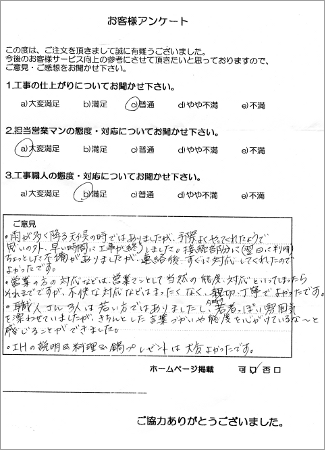 お客様アンケート
この度は、ご注文を頂きまして誠に有難うございました。
今後のお客様サービス向上の参考にさせて頂きたいと思っておりますので、
ご意見・ご感想をお聞かせ下さい。
1.工事の仕上がりについてお聞かせ下さい。
a)大変満足 b)満足 c)普通 d)やや不満 e)不満
2.担当営業マンの態度・対応についてお聞かせ下さい。
a)大変満足 b)満足 c)普通 d)やや不満 e)不満
3.工事職人の態度・対応についてお聞かせ下さい。
a)大変満足 b)満足 c)普通 d)やや不満 e)不満
ご意見
・雨が多く降る天候の時ではありましたが、手際よくやってくれたようで
思いの外、早い時間に工事が終了しました。接続部分に
ちょっとした不備がありましたが、連絡後、すぐに対応してくれたので
よかったです。
・営業の方の対応などは、営業マンとして当然の態度、対応といってしまったら
それまでですが、不快な対応などはまったくなく、親切、丁寧でよかったです。
・職人さん 多くは若い方ではありましたし、若者っぽい雰囲気
を漂わせていましたが、きちんとした言葉づかいや態度を心がけているな～と
感じることができました。
・IHの説明 料理 鍋プレゼントは大変よかったです。
ホームページ掲載 可 / 否
ご協力ありがとうございました。